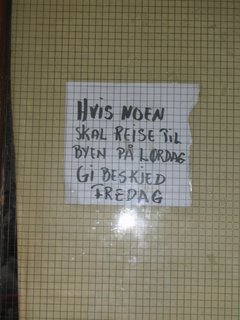 HVIS NOEN
SKAL REISE TIL
BYEN PÅ LØRDAG
GI BESKJED
FREDAG